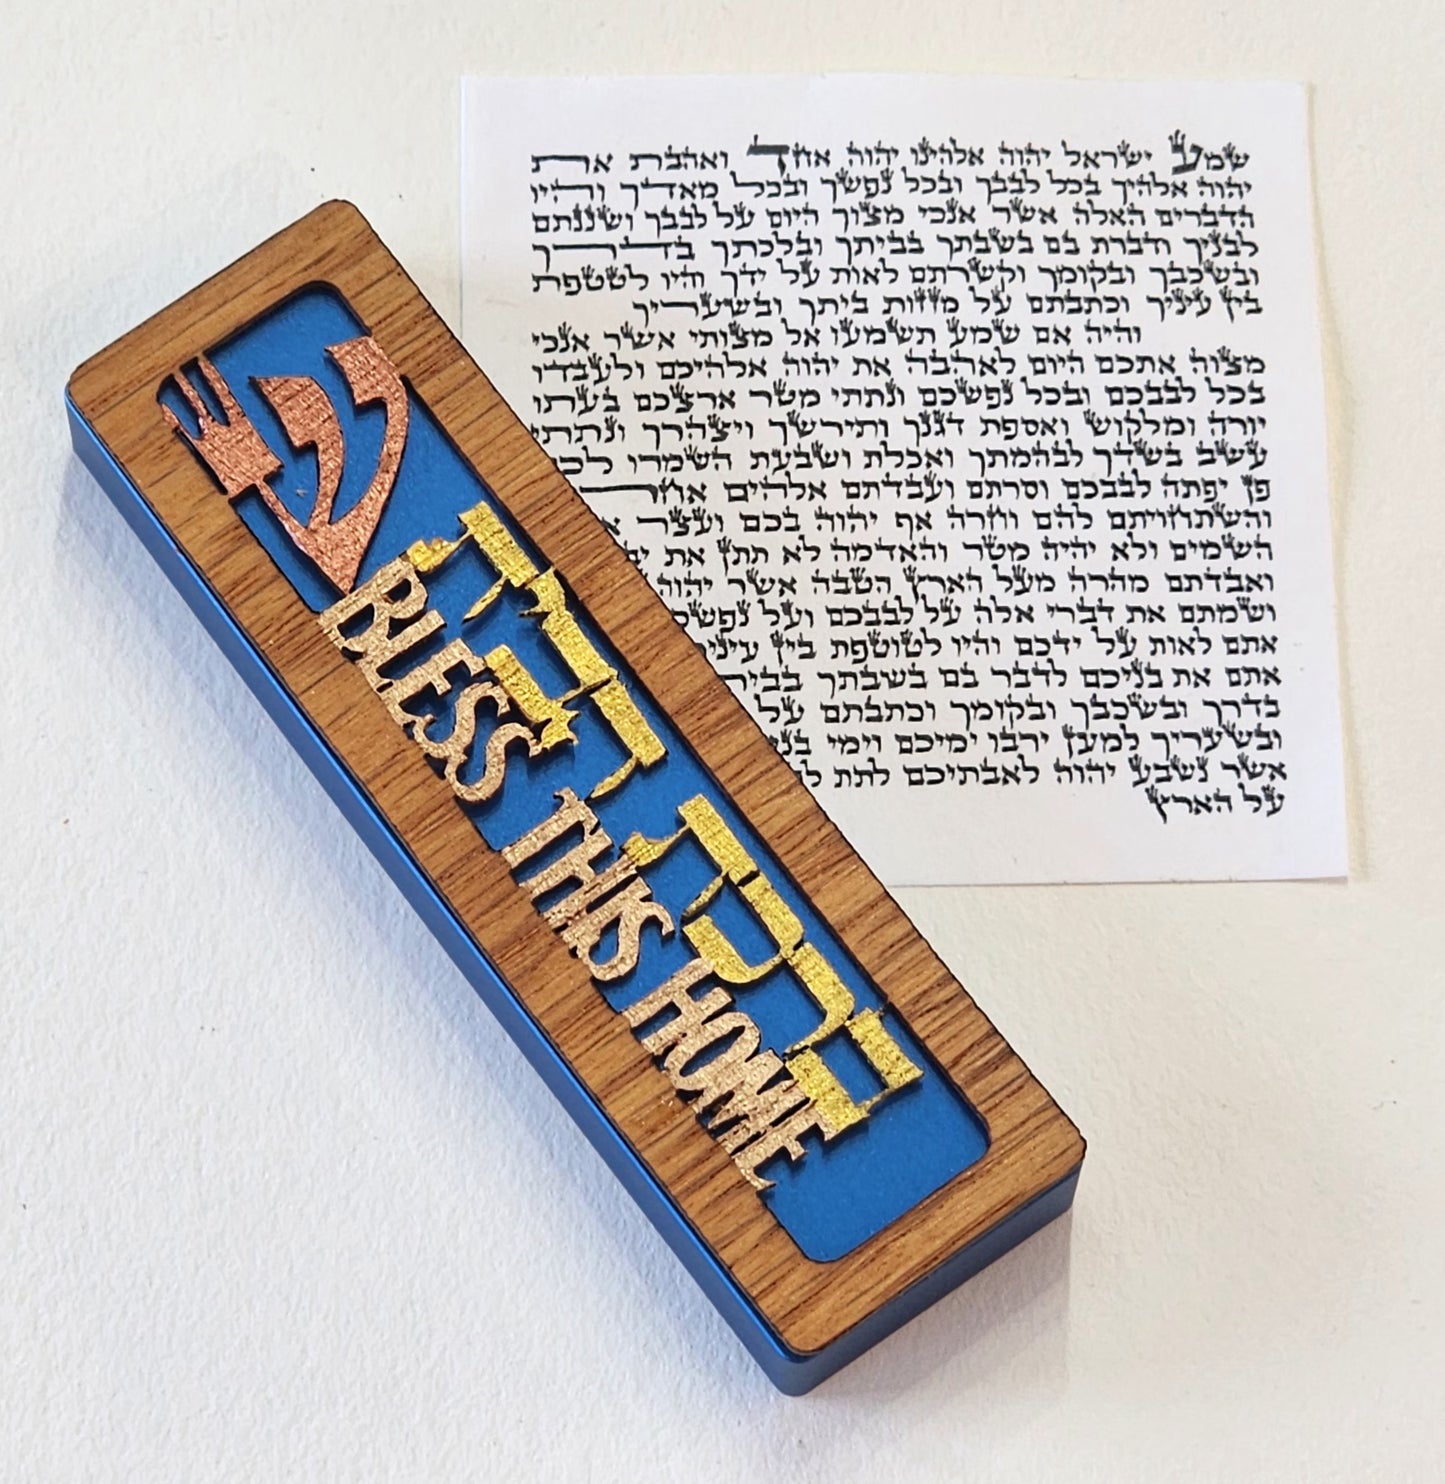 שמע ישראל יהוה אלהינו יהוה אחד ואהבת את
יהוה אלהיך בכל לבבך ובכל נפשך ובכל מאדך והיו
הדברים האלה אשר אנכי מצוך היום על לבבך ושננתם
לבניך ודברת בם בשבתך בביתך ובלכתך בדרך
ובשכבך ובקומך וקשרתם לאות על ידך והיו לטטפת
בין עיניך וכתבתם על מזזות ביתך ובשעריך
והיה אם שמע תשמעו אל מצותי אשר אנכי
מצוה אתכם היום לאהבה את יהוה אלהיכם ולעבדו
בכל לבבכם ובכל נפשכם ונתתי מטר ארצכם בעתו
יורה ומלקוש ואספת דגנך ותירשך ויצהרך ונתתי
עשב בשדך לבהמתך ואכלת ושבעת השמרו
פן יפתה לבבכם וסרתם ועבדתם אלהים
והשתחויתם להם וחרה אף יהוה בכם ועצר
השמים ולא יהיה מטר והאדמה לא תתן את
ואבדתם מהרה מעל הארץ הטבה אשר יהוה
ושמתם את דברי אלה על לבבכם ועל
אתם לאות על ידכם והיו לטוטפת בין
אתם את בניכם לדבר בם בשבתך
בדרך ובשכבך ובקומך וכתבתם על
ובשעריך למען ירבו ימיכם וימי
אשר נשבע יהוה לאבתיכם לתת
על הארץ
ש
ברכת הבית
BLESS THIS HOME